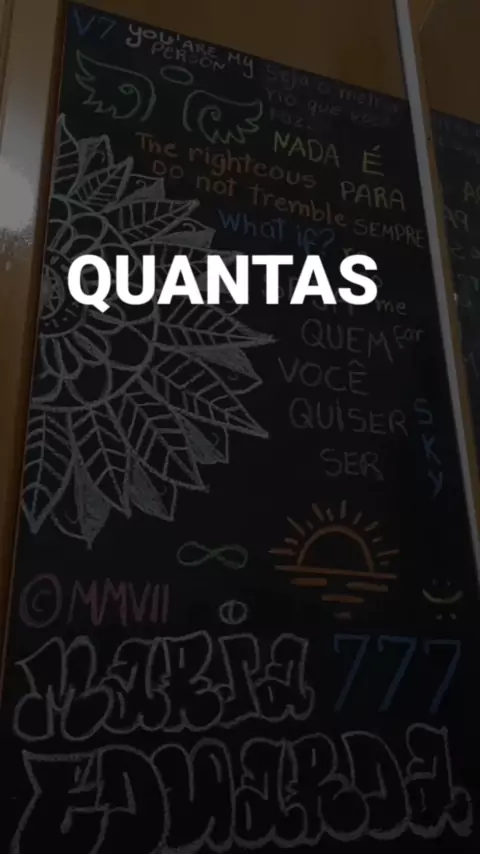 V7
YOU ARE MY
PERSON
Seja o melhor
que você
The righteous
Do not tremble
NADA É
PARA
SEMPRE
What if?
QUANTAS
me
far
QUEM
VOCÊ
QUISER
SER
SKY
©MMVII
777
MARIA
EDUARDA.